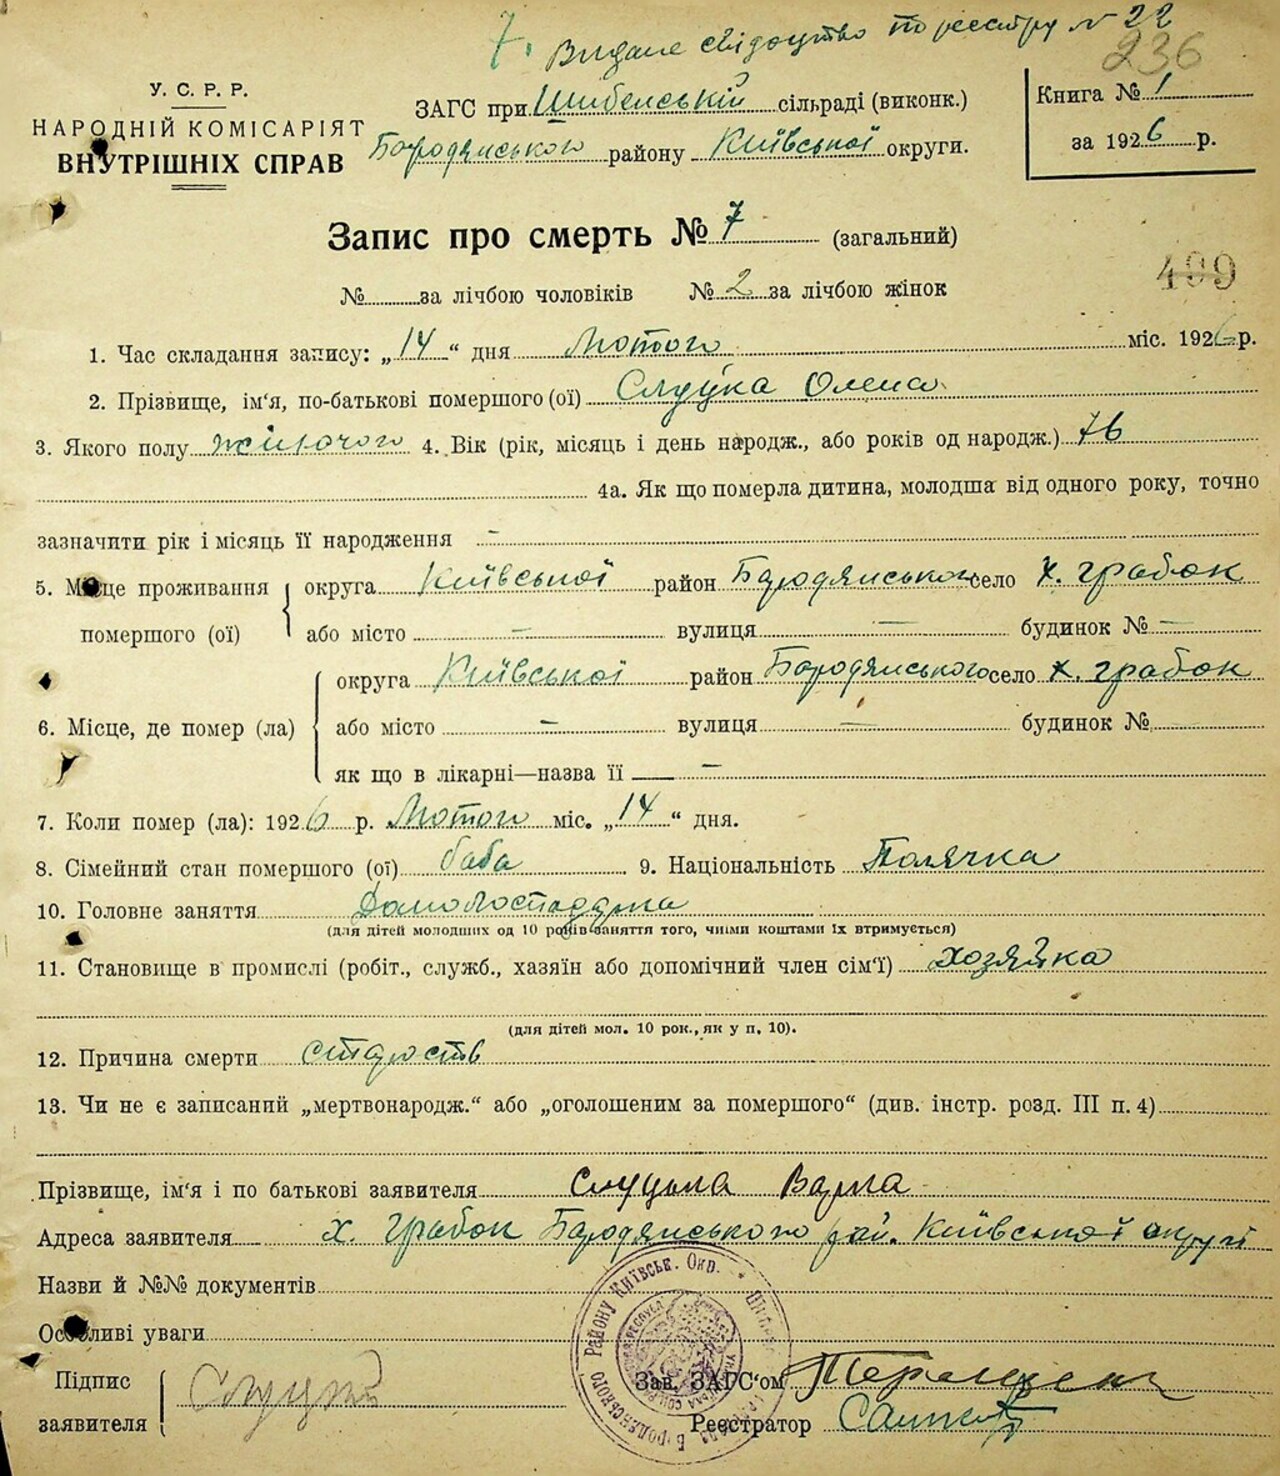 7. Видане свідоцтво по реєстру № 22
236
У. С. Р. Р.
НАРОДНІЙ КОМІСАРІЯТ
ВНУТРІШНІХ СПРАВ
ЗАГС при Шибенській сільраді (виконк.)
Бородянського району Київської округи.
Книга № 1
за 1926 р.
Запис про смерть № 7 (загальний)
499
№ за лічбою чоловіків № 2 за лічбою жінок
1. Час складання запису: „14“ дня Лютого міс. 1926 р.
2. Прізвище, ім'я, по-батькові помершого (ої) Слуцка Олена
3. Якого полу жіночого 4. Вік (рік, місяць і день народж., або років од народж.) 76
4а. Як що померла дитина, молодша від одного року, точно
зазначити рік і місяць її народження –
5. Місце проживання помершого (ої) округа Київської район Бородянського село х. Грабок
або місто – вулиця – будинок № –
6. Місце, де помер (ла) округа Київської район Бородянського село х. Грабок
або місто – вулиця – будинок № –
як що в лікарні—назва її –
7. Коли помер (ла): 1926 р. Лютого міс. „14“ дня.
8. Сімейний стан помершого (ої) баба 9. Національність Полячка
10. Головне заняття Домогосподарка
(для дітей молодших од 10 років заняття того, чиїми коштами їх втримується)
11. Становище в промислі (робіт., служб., хазяїн або допомічний член сім'ї) хозяйка
(для дітей мол. 10 рок., як у п. 10).
12. Причина смерти старость
13. Чи не є записаний „мертвонародж.“ або „оголошеним за помершого“ (див. інстр. розд. III п. 4)
Прізвище, ім'я і по батькові заявителя
Адреса заявителя х. Грабок Бородянського рай. Київської округи
Назви й №№ документів
Особливі уваги
Підпис заявителя Слуцкий
Зав. ЗАГС'ом
Реєстратор
Району Київськ. Окр.